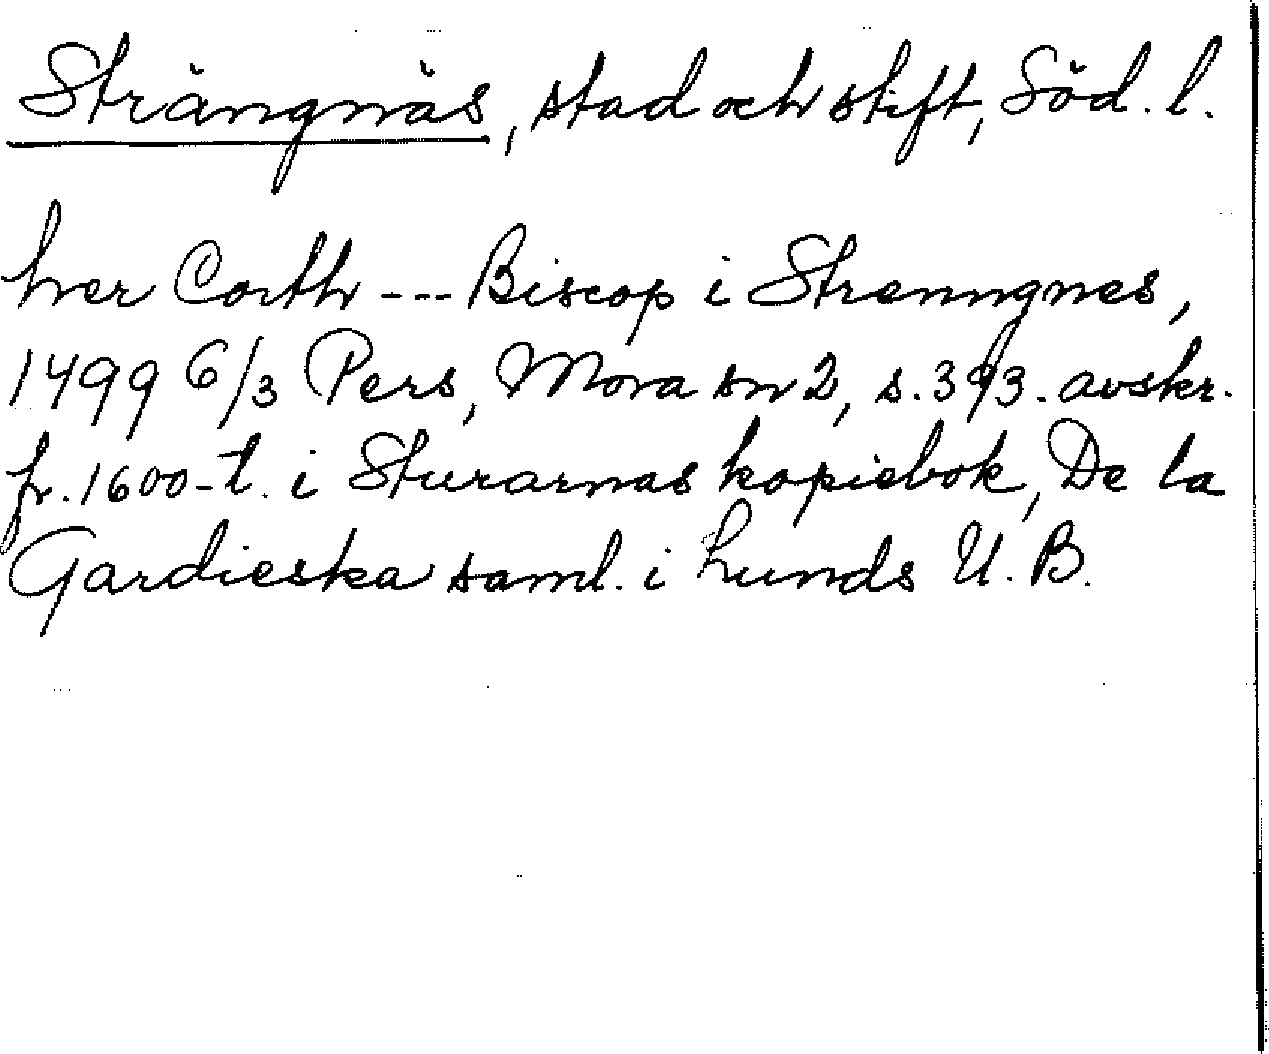 Strängnäs, stad och stift, Söd. l.
her Corth --- Biscop i Strenngnes,
1499 6/3 Pers, Mora sn 2, s. 393. avskr.
fr. 1600-t. i Sturarnas kopiebok, De la
Gardieska saml. i Lunds U. B.